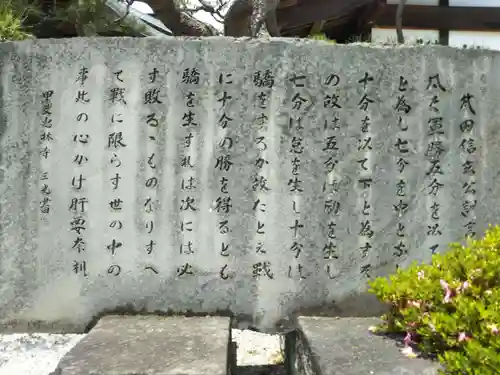 武田信玄公訓言
凡そ軍勝五分を以て上
と為し七分を中と為し
十分を以て下と為す其
の故は五分は励を生し
七分は怠を生し十分は
驕を生するか故たとえ戦
に十分の勝を得るとも
驕を生すれは次には必
す敗るゝものなりすへ
て戦に限らす世の中の
事此の心かけ肝要奈利
甲斐恵林寺